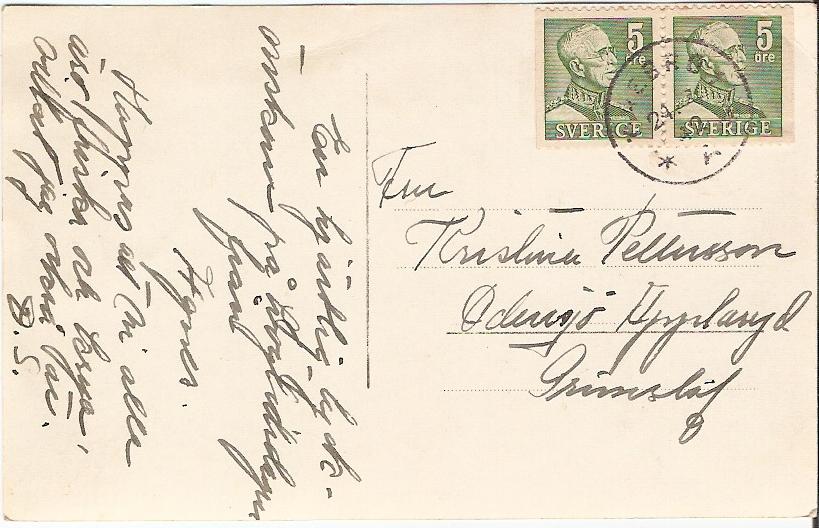 5 öre
SVERIGE
5 öre
SVERIGE
24
Fru
Kristina Pettersson
Odensjö Hjpplaryd
Grimslöf
En hjärtlig lyck-
önskan på högtidsdagen
från
Agnes.
Hoppas att ni alla
äro friska och krya,
vilket jag också är.
D. S.